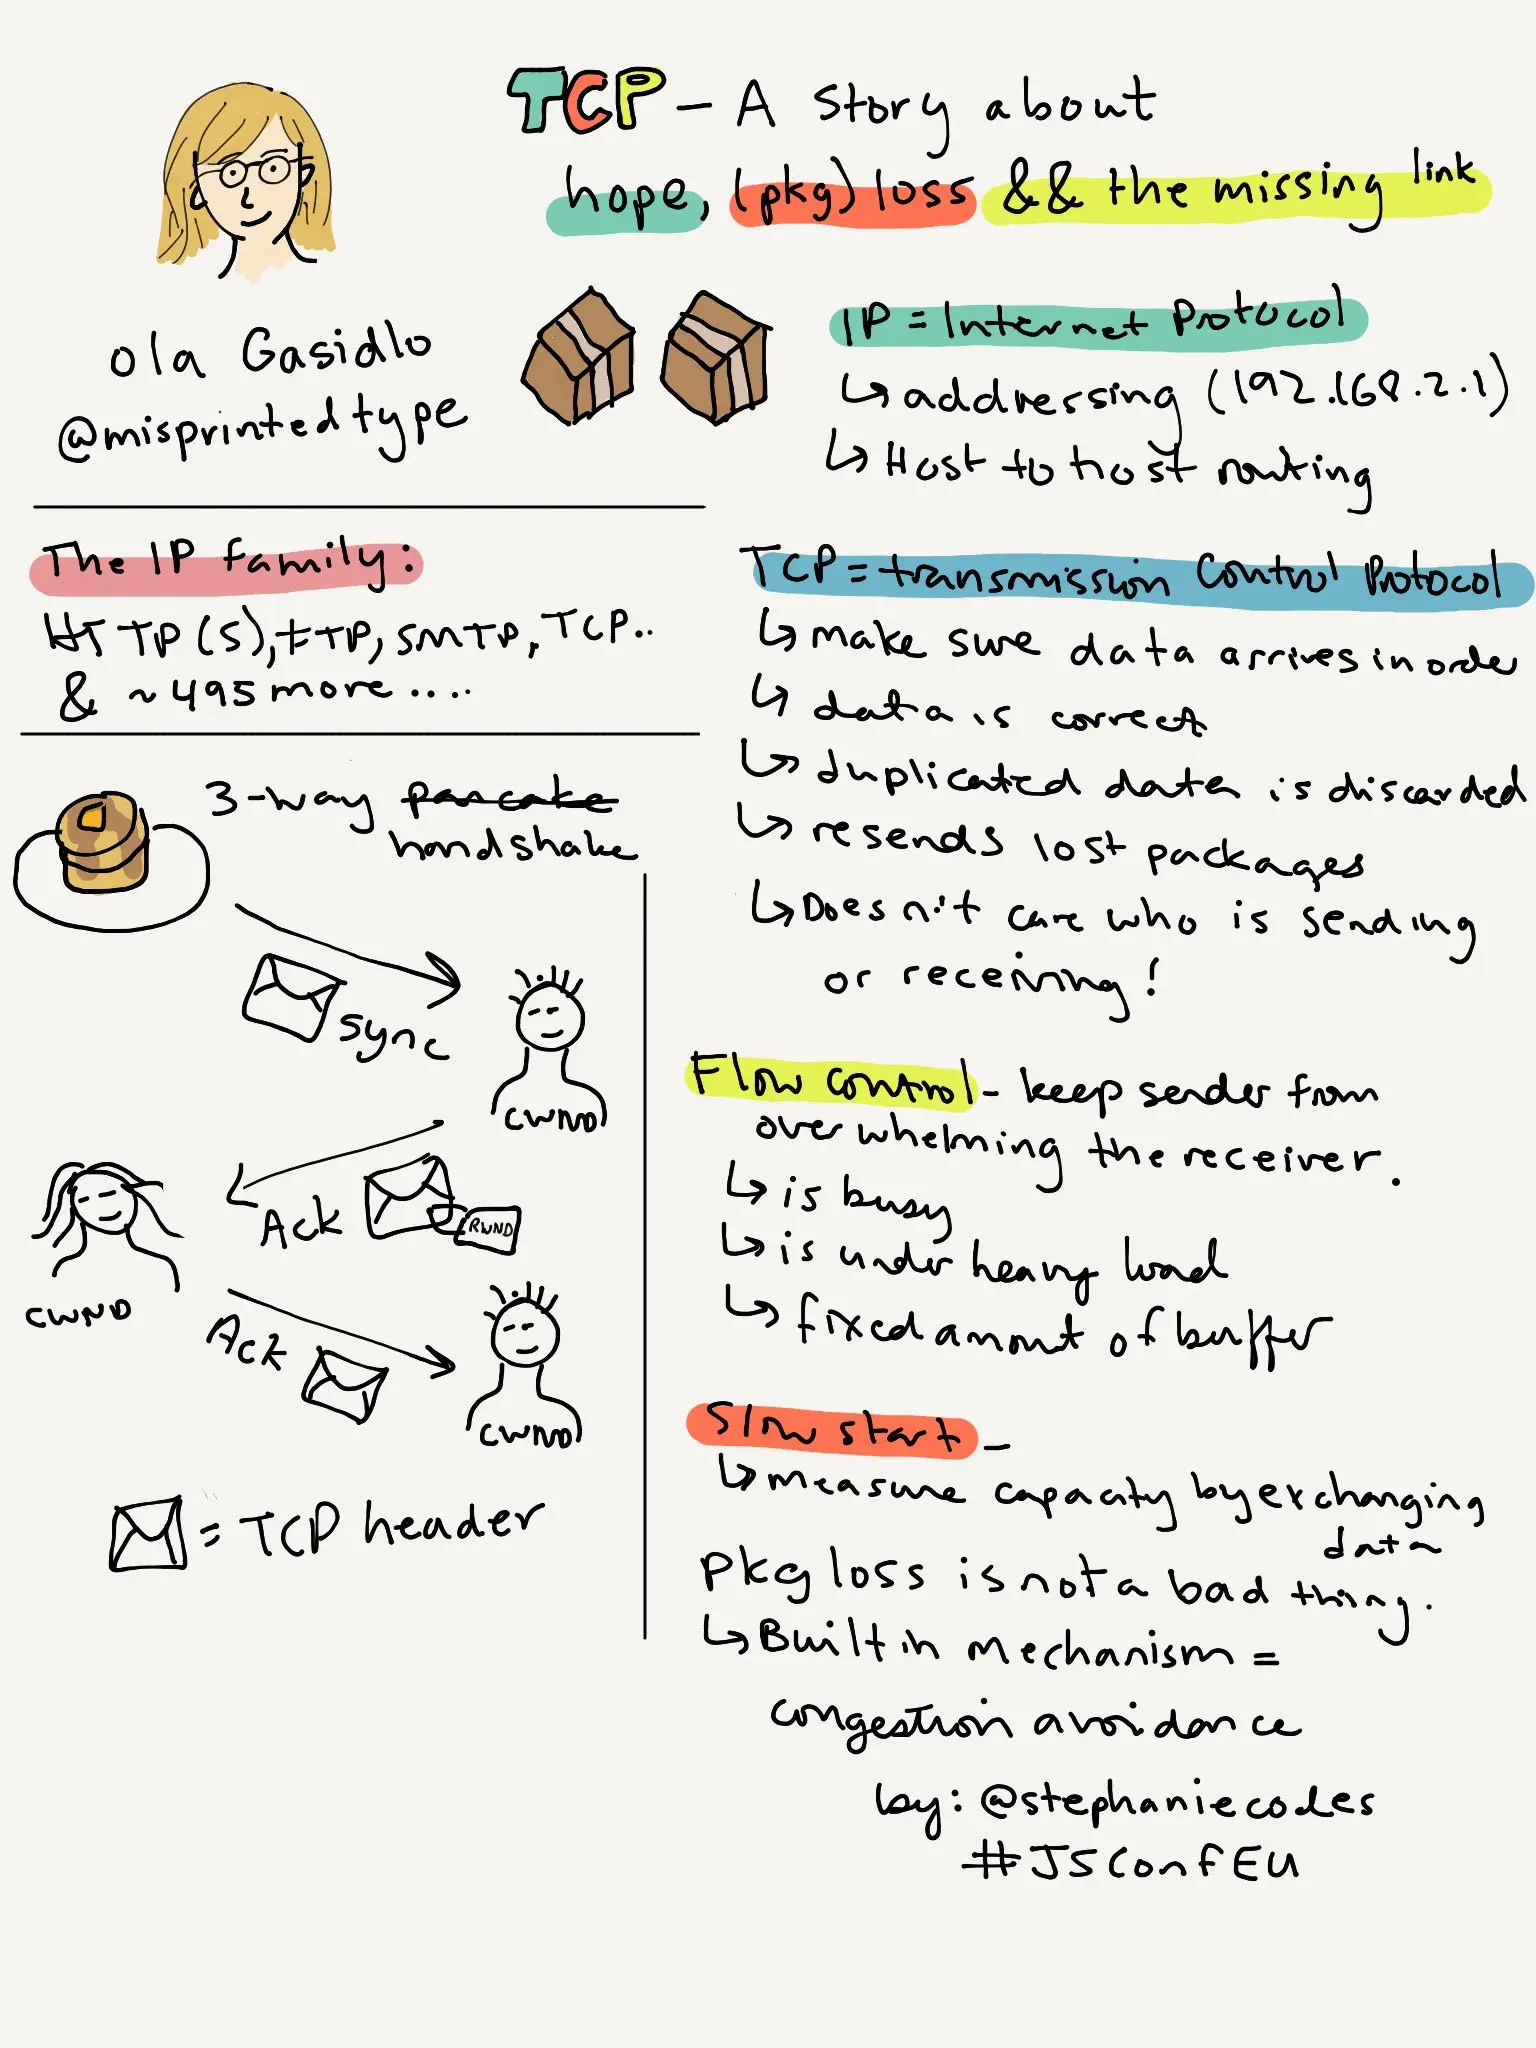 TCP - A story about
hope, (pkg) loss && the missing link
ola Gasidlo
@misprintedtype
IP = Internet Protocol
↳ addressing (192.168.2.1)
↳ Host to host routing
The IP family:
HTTP(S), FTP, SMTP, TCP..
& ~495 more....
TCP = transmission Control Protocol
↳ make sure data arrives in order
↳ data is correct
↳ duplicated data is discarded
↳ resends lost packages
↳ Doesn't care who is sending
or receiving!
3-way pancake
handshake
sync
CWND
Ack
RWND
CWND
Ack
CWND
= TCP header
Flow control - keep sender from
overwhelming the receiver.
↳ is busy
↳ is under heavy load
↳ fixed amount of buffer
Slow start -
↳ measure capacity by exchanging
data
Pkg loss is not a bad thing.
↳ Built in mechanism =
congestion avoidance
by: @stephaniecodes
#JSConfEU